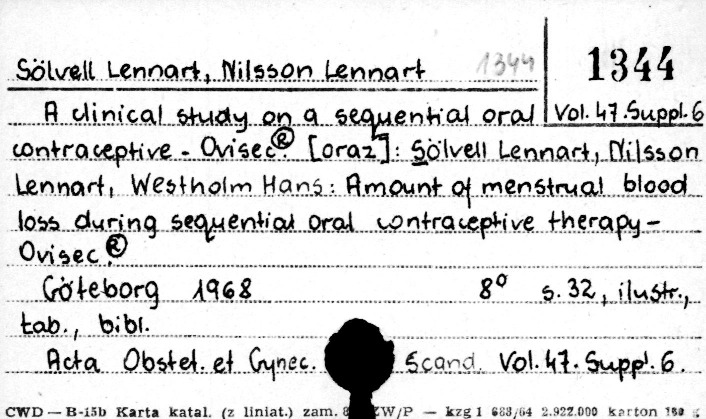 Sölvell Lennart, Nilsson Lennart 1344 1344
A clinical study on a sequential oral Vol. 47. Suppl. 6
contraceptive - Ovisec®. [oraz]: Sölvell Lennart, Nilsson
Lennart, Westholm Hans: Amount of menstrual blood
loss during sequential oral contraceptive therapy -
Ovisec.®
Göteborg 1968 8° s. 32, ilustr.,
tab., bibl.
Acta Obstet. et Gynec. Scand. Vol. 47. Suppl. 6.
CWD — B-15b Karta katal. (z liniat.) zam. ZW/P — kzg 1 688/64 2.922.000 karton